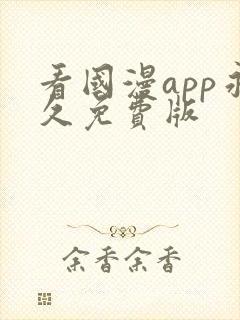 看國漫app永
久免費版
余香余香